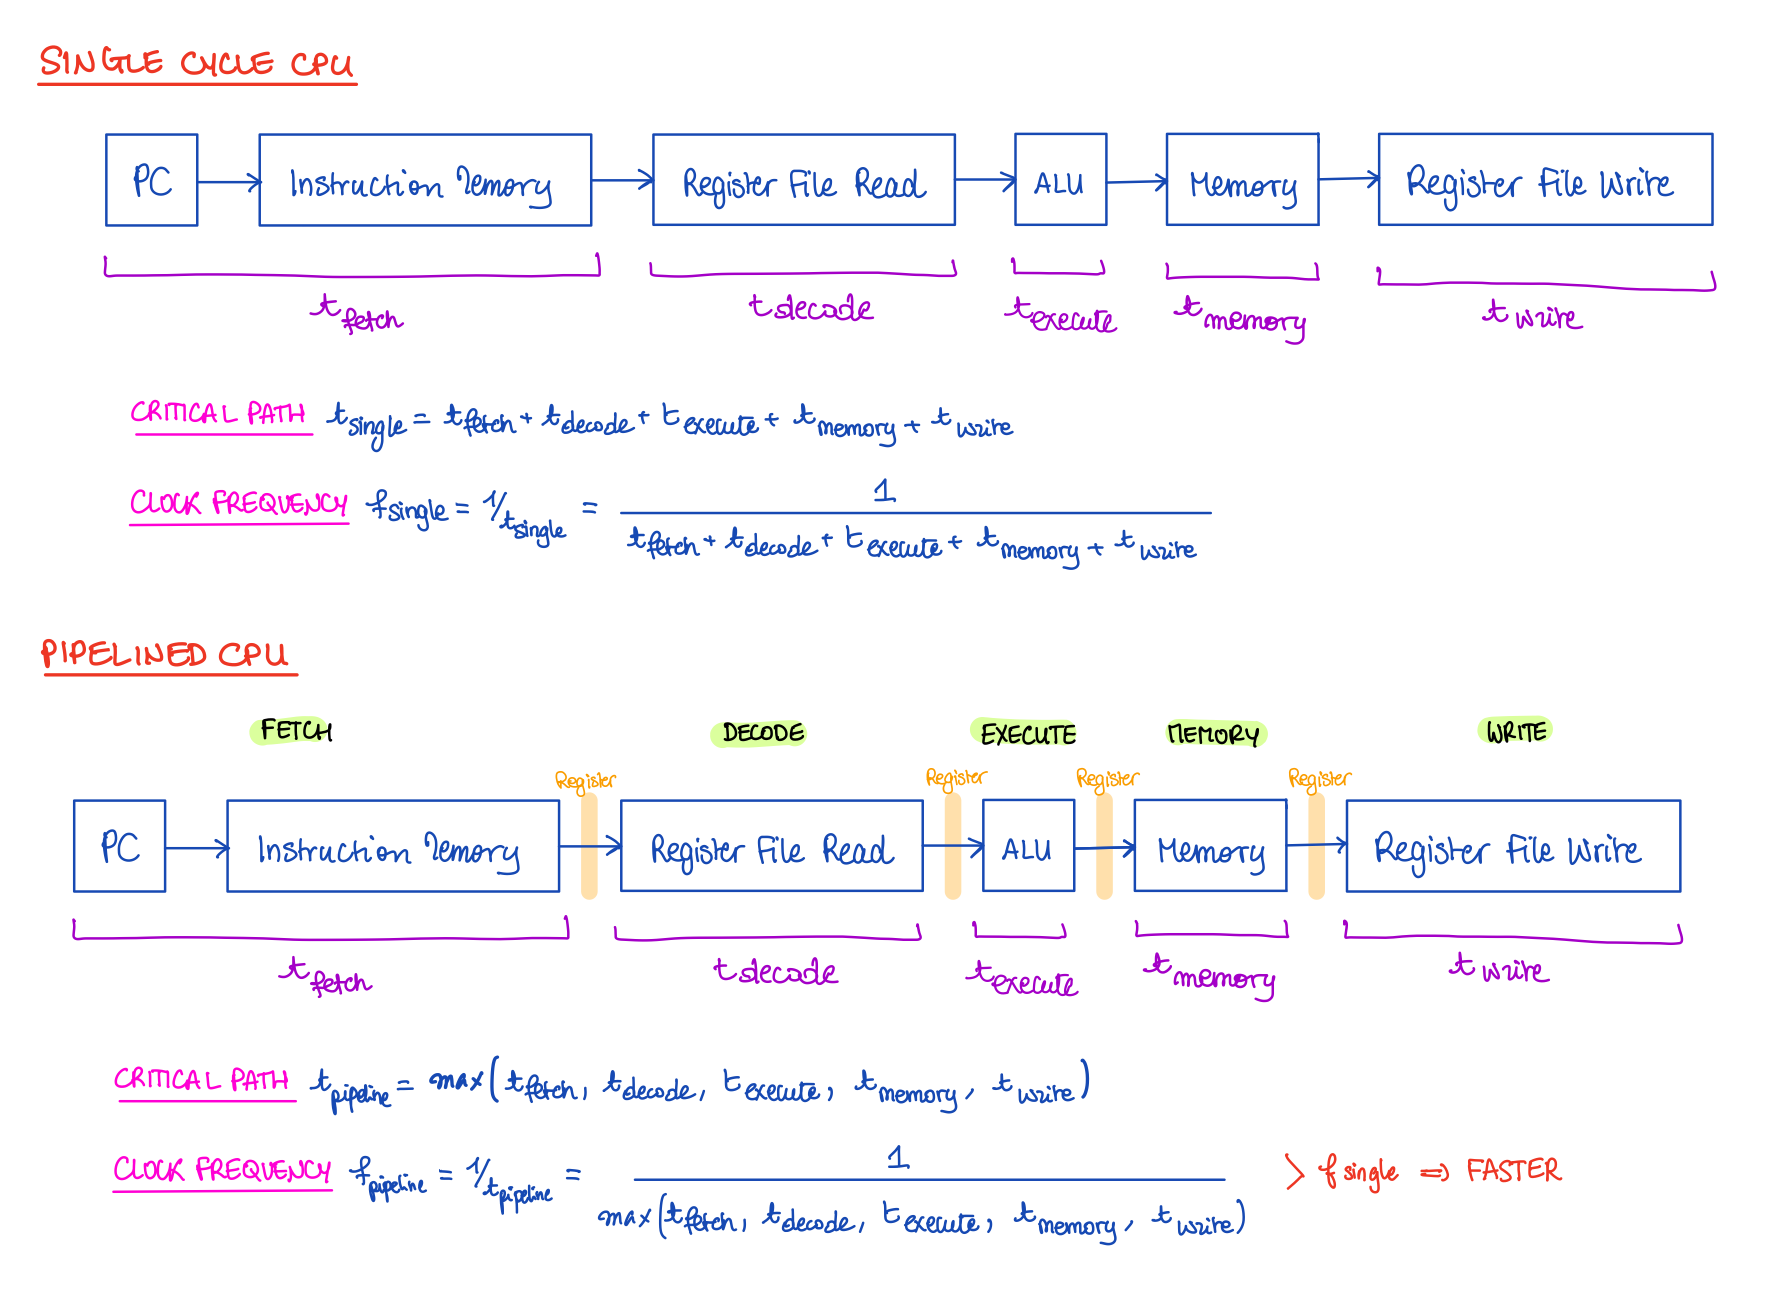 SINGLE CYCLE CPU
PC Instruction Memory Register File Read ALU Memory Register File Write
t fetch t decode t execute t memory t write
CRITICAL PATH t single = t fetch + t decode + t execute + t memory + t write
CLOCK FREQUENCY f single = 1/t single = 1
t fetch + t decode + t execute + t memory + t write
PIPELINED CPU
FETCH DECODE EXECUTE MEMORY WRITE
Register Register Register Register
PC Instruction Memory Register File Read ALU Memory Register File Write
t fetch t decode t execute t memory t write
CRITICAL PATH t pipeline = max(t fetch, t decode, t execute, t memory, t write)
CLOCK FREQUENCY f pipeline = 1/t pipeline = 1 > f single => FASTER
max(t fetch, t decode, t execute, t memory, t write)